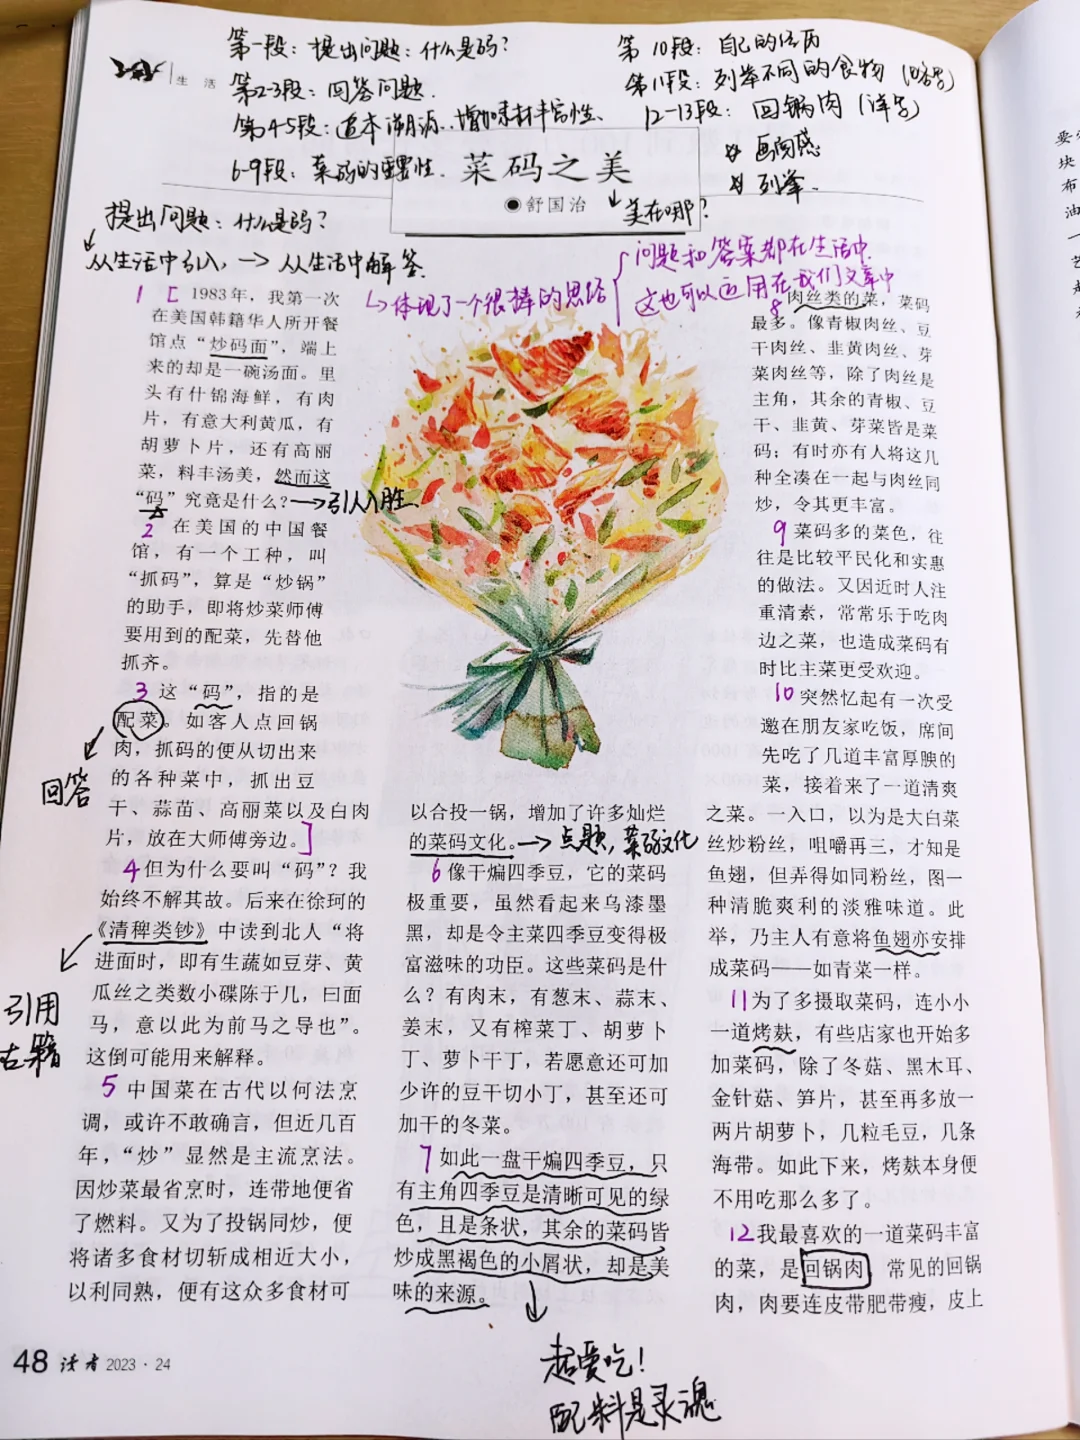 第一段：提出问题：什么是码？
第2-3段：回答问题.
第4-5段：追本溯源..增加味材丰富性、
6-9段：菜码的重要性.
第10段：自己的经历
第11段：列举不同的食物（略写）
12-13段：回锅肉（详写）
画面感
列举.
生 活
菜码之美
●舒国治
美在哪？
提出问题：什么是码？
从生活中引入，→从生活中解答.
体现了一个很棒的思路
问题和答案都在生活中.
这也可以运用在我们文章中
1 [ 1983年，我第一次
在美国韩籍华人所开餐
馆点“炒码面”，端上
来的却是一碗汤面。里
头有什锦海鲜，有肉
片，有意大利黄瓜，有
胡萝卜片，还有高丽
菜，料丰汤美，然而这
“码”究竟是什么？→引人入胜.
2 在美国的中国餐
馆，有一个工种，叫
“抓码”，算是“炒锅”
的助手，即将炒菜师傅
要用到的配菜，先替他
抓齐。
3 这“码”，指的是
配菜。如客人点回锅
肉，抓码的便从切出来
的各种菜中，抓出豆
干、蒜苗、高丽菜以及白肉
片，放在大师傅旁边。]
回答
4 但为什么要叫“码”？我
始终不解其故。后来在徐珂的
《清稗类钞》中读到北人“将
进面时，即有生蔬如豆芽、黄
瓜丝之类数小碟陈于几，曰面
马，意以此为前马之导也”。
这倒可能用来解释。
引用
古籍
5 中国菜在古代以何法烹
调，或许不敢确言，但近几百
年，“炒”显然是主流烹法。
因炒菜最省烹时，连带地便省
了燃料。又为了投锅同炒，便
将诸多食材切斩成相近大小，
以利同熟，便有这众多食材可
以合投一锅，增加了许多灿烂
的菜码文化。→点题，菜码文化
6 像干煸四季豆，它的菜码
极重要，虽然看起来乌漆墨
黑，却是令主菜四季豆变得极
富滋味的功臣。这些菜码是什
么？有肉末，有葱末、蒜末、
姜末，又有榨菜丁、胡萝卜
丁、萝卜干丁，若愿意还可加
少许的豆干切小丁，甚至还可
加干的冬菜。
7 如此一盘干煸四季豆，只
有主角四季豆是清晰可见的绿
色，且是条状，其余的菜码皆
炒成黑褐色的小屑状，却是美
味的来源。
超爱吃！
配料是灵魂
8 肉丝类的菜，菜码
最多。像青椒肉丝、豆
干肉丝、韭黄肉丝、芽
菜肉丝等，除了肉丝是
主角，其余的青椒、豆
干、韭黄、芽菜皆是菜
码；有时亦有人将这几
种全凑在一起与肉丝同
炒，令其更丰富。
9 菜码多的菜色，往
往是比较平民化和实惠
的做法。又因近时人注
重清素，常常乐于吃肉
边之菜，也造成菜码有
时比主菜更受欢迎。
10 突然忆起有一次受
邀在朋友家吃饭，席间
先吃了几道丰富厚腴的
菜，接着来了一道清爽
之菜。一入口，以为是大白菜
丝炒粉丝，咀嚼再三，才知是
鱼翅，但弄得如同粉丝，图一
种清脆爽利的淡雅味道。此
举，乃主人有意将鱼翅亦安排
成菜码——如青菜一样。
11 为了多摄取菜码，连小小
一道烤麸，有些店家也开始多
加菜码，除了冬菇、黑木耳、
金针菇、笋片，甚至再多放一
两片胡萝卜，几粒毛豆，几条
海带。如此下来，烤麸本身便
不用吃那么多了。
12 我最喜欢的一道菜码丰富
的菜，是回锅肉 常见的回锅
肉，肉要连皮带肥带瘦，皮上
48 读者 2023·24